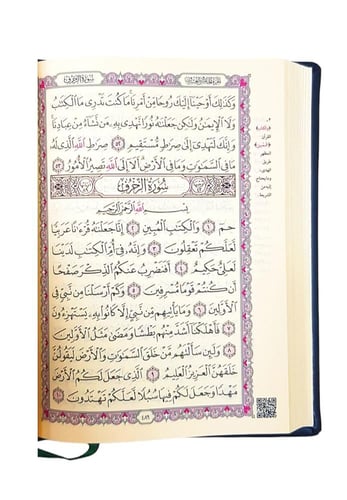 سورة الزخرف
الجزء الخامس والعشرون
وَكَذَٰلِكَ أَوْحَيْنَا إِلَيْكَ رُوحًا مِّنْ أَمْرِنَا مَا كُنتَ تَدْرِي مَا الْكِتَابُ
وَلَا الْإِيمَانُ وَلَٰكِن جَعَلْنَاهُ نُورًا نَّهْدِي بِهِ مَن نَّشَاءُ مِنْ عِبَادِنَا
وَإِنَّكَ لَتَهْدِي إِلَىٰ صِرَاطٍ مُّسْتَقِيمٍ ٥٢ صِرَاطِ اللَّهِ الَّذِي لَهُ
مَا فِي السَّمَاوَاتِ وَمَا فِي الْأَرْضِ أَلَا إِلَى اللَّهِ تَصِيرُ الْأُمُورُ ٥٣
سُورَةُ الزُّخْرُفِ
بِسْمِ اللَّهِ الرَّحْمَٰنِ الرَّحِيمِ
حم ١ وَالْكِتَابِ الْمُبِينِ ٢ إِنَّا جَعَلْنَاهُ قُرْآنًا عَرَبِيًّا
لَّعَلَّكُمْ تَعْقِلُونَ ٣ وَإِنَّهُ فِي أُمِّ الْكِتَابِ لَدَيْنَا
لَعَلِيٌّ حَكِيمٌ ٤ أَفَنَضْرِبُ عَنكُمُ الذِّكْرَ صَفْحًا
أَن كُنتُمْ قَوْمًا مُّسْرِفِينَ ٥ وَكَمْ أَرْسَلْنَا مِن نَّبِيٍّ فِي
الْأَوَّلِينَ ٦ وَمَا يَأْتِيهِم مِّن نَّبِيٍّ إِلَّا كَانُوا بِهِ يَسْتَهْزِئُونَ
٧ فَأَهْلَكْنَا أَشَدَّ مِنْهُم بَطْشًا وَمَضَىٰ مَثَلُ الْأَوَّلِينَ
٨ وَلَئِن سَأَلْتَهُم مَّنْ خَلَقَ السَّمَاوَاتِ وَالْأَرْضَ لَيَقُولُنَّ
خَلَقَهُنَّ الْعَزِيزُ الْعَلِيمُ ٩ الَّذِي جَعَلَ لَكُمُ الْأَرْضَ
مَهْدًا وَجَعَلَ لَكُمْ فِيهَا سُبُلًا لَّعَلَّكُمْ تَهْتَدُونَ ١٠
٤٨٩